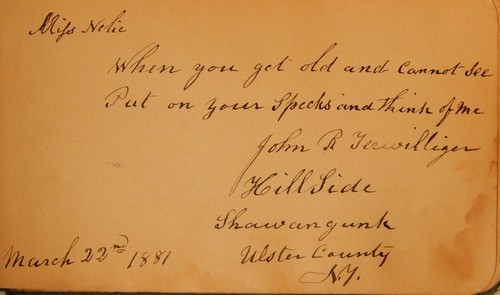 Miss Nelie
When you get old and Cannot See
Put on your Specks and think of me
John R Terwilliger
Hill Side
Shawangunk
Ulster County
N.Y.
March 22nd 1881